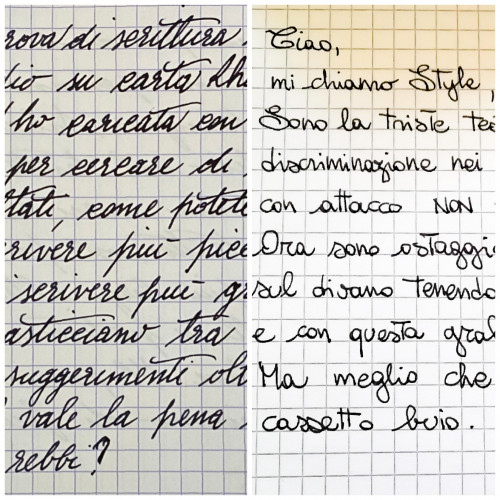 rova di scrittura
dio su carta Lho
ho caricata con
per cercare di
tati, come potete
rivere più picc
scrivere più gr
asticciano tra
suggerimenti olt
vale la pena
rebbi?
Ciao,
mi chiamo Style,
Sono la triste tes
discriminazione nei
con attacco NON
Ora sono ostaggi
sul divano tenendo
e con questa graf
Ma meglio che
cassetto buio.